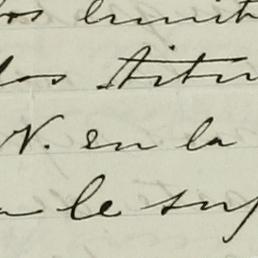 los limit
los titu
N. en la
a le suf